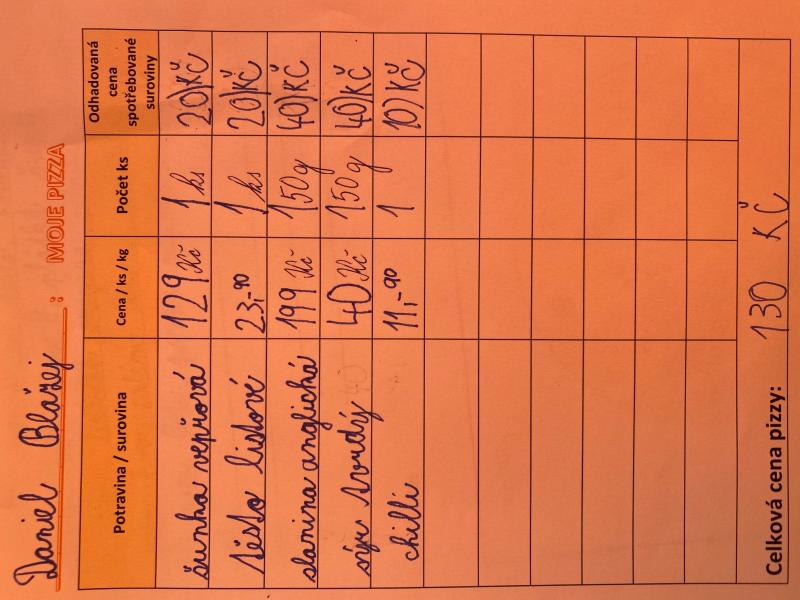 Daniel Blažej : MOJE PIZZA
Potravina / surovina Cena / ks / kg Počet ks Odhadovaná cena spotřebované suroviny
šunka vepřová 129 Kč 1 ks 20 Kč
těsto listové 23,-90 1 ks 20 Kč
slanina anglická 199 Kč 150g 40 Kč
sýr tvrdý 40 Kč 150g 40 Kč
chilli 11,-90 1 10 Kč
Celková cena pizzy: 130 Kč